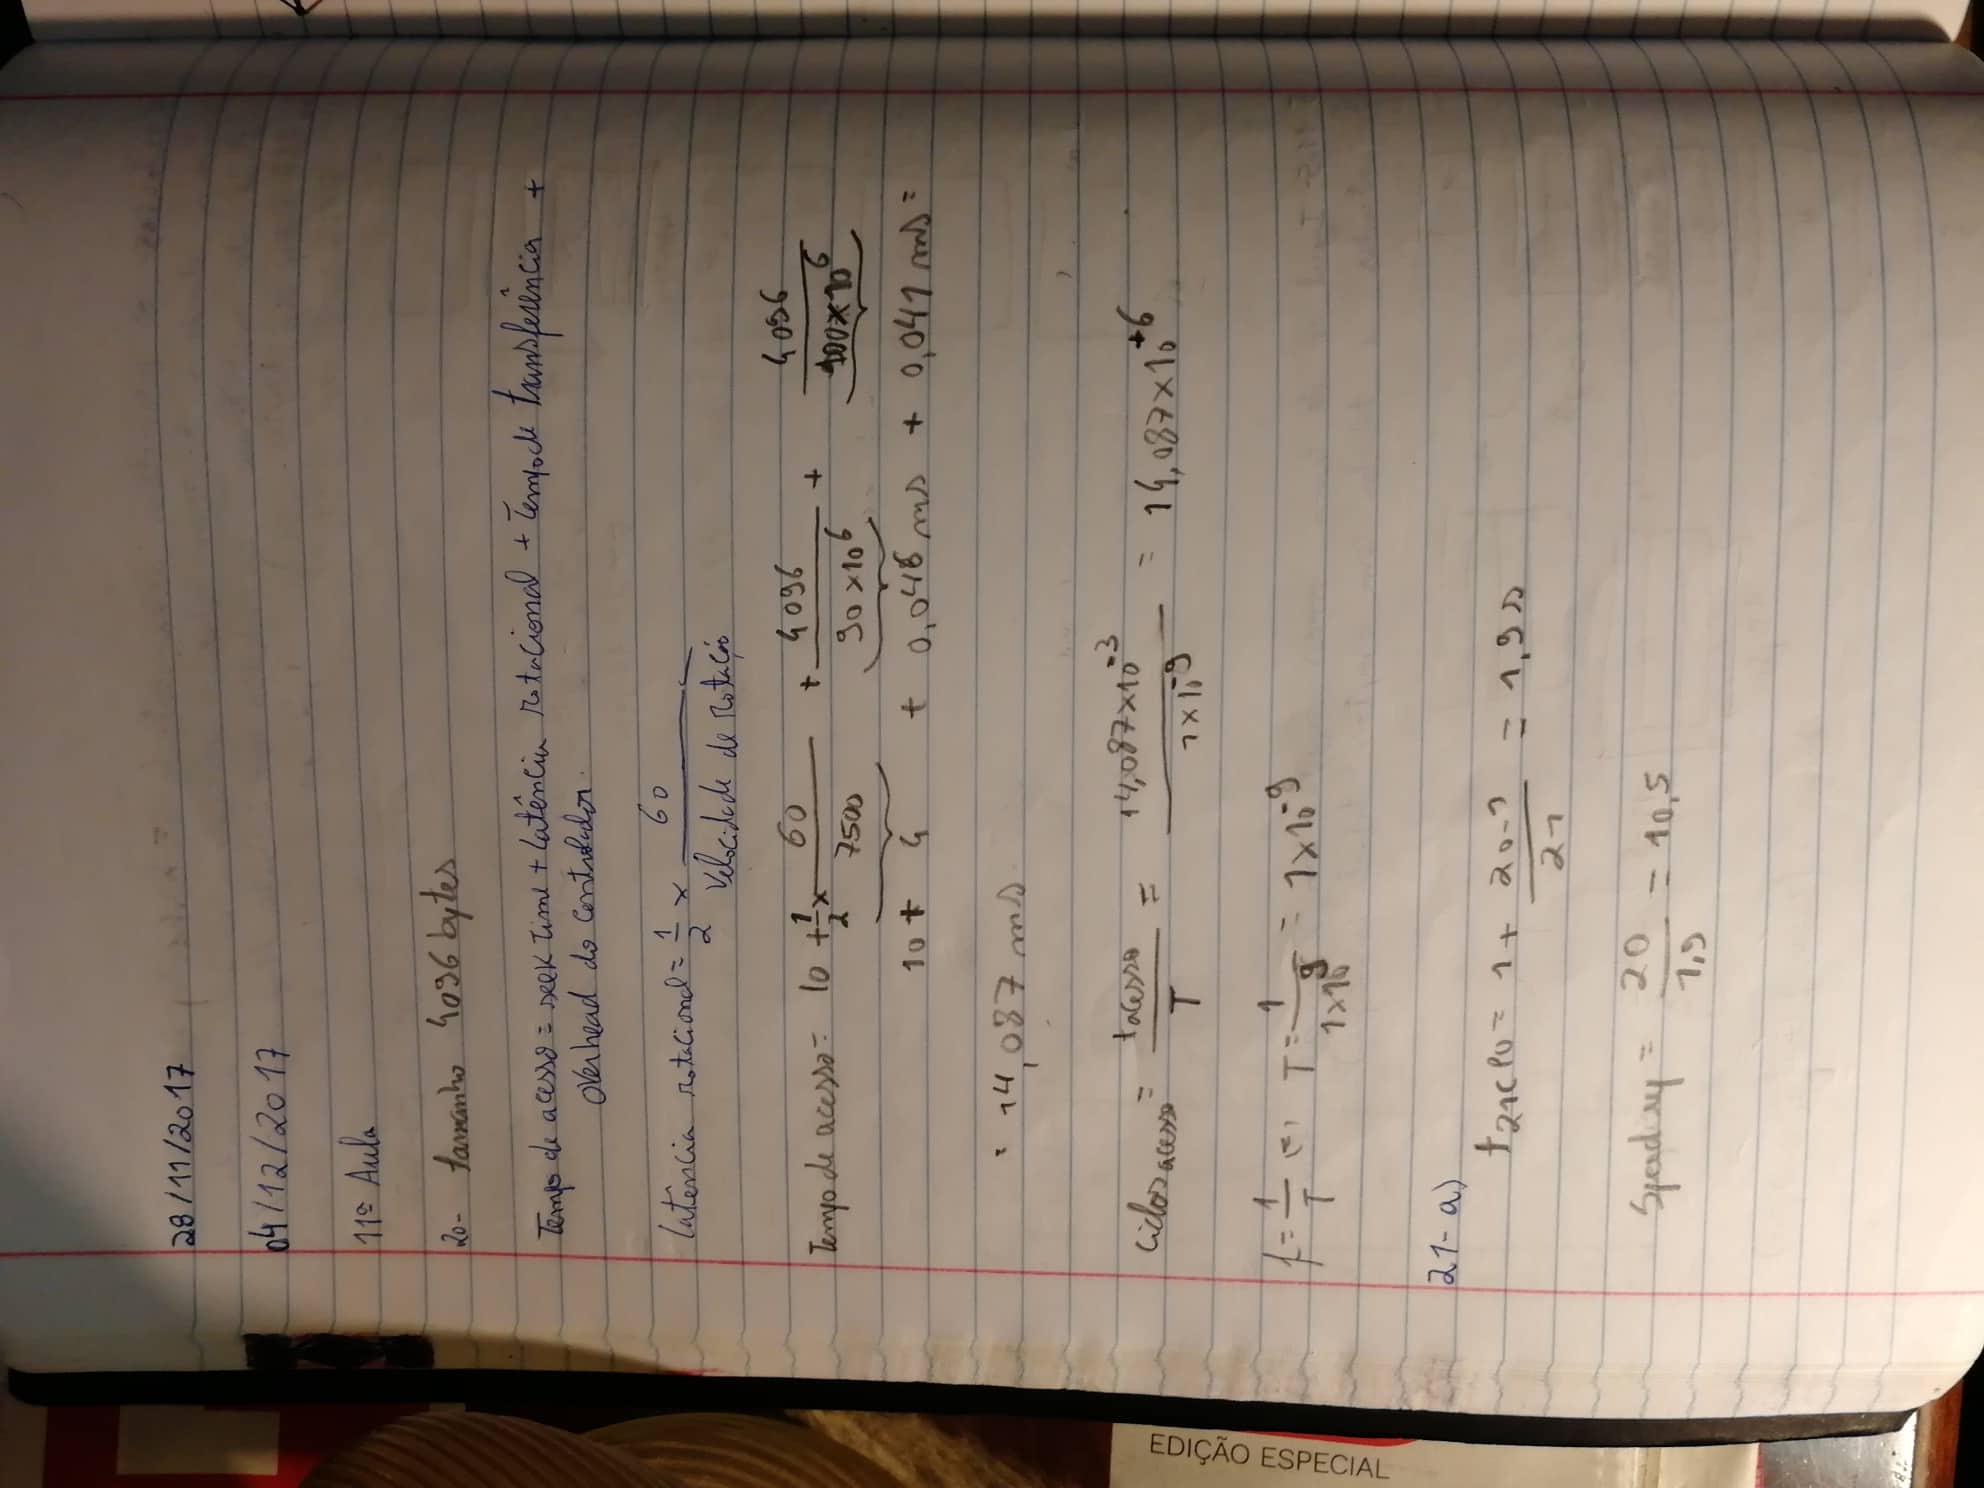 28/11/2017
04/12/2017
11ª Aula
20- tamanho 4096 bytes
Tempo de acesso = seek time + latência rotacional + Tempo de transferência +
overhead do controlador.
latência rotacional = 1/2 x 60/velocidade de rotação
Tempo de acesso = 10 + 1/2 x 60/7500 + 4096/90x10^6 + 4096/100x10^6
10 + 4 + 0,046 ms + 0,041 ms =
= 14,087 ms
Ciclos acesso = tacesso/T = 14,087x10^-3/1x10^-9 = 14,087x10^+6
f = 1/T (=) T = 1/1x10^9 = 1x10^-9
21- a)
= 1 + 20-1/21 = 1,9 s
= 20/1,9 = 10,5
EDIÇÃO ESPECIAL